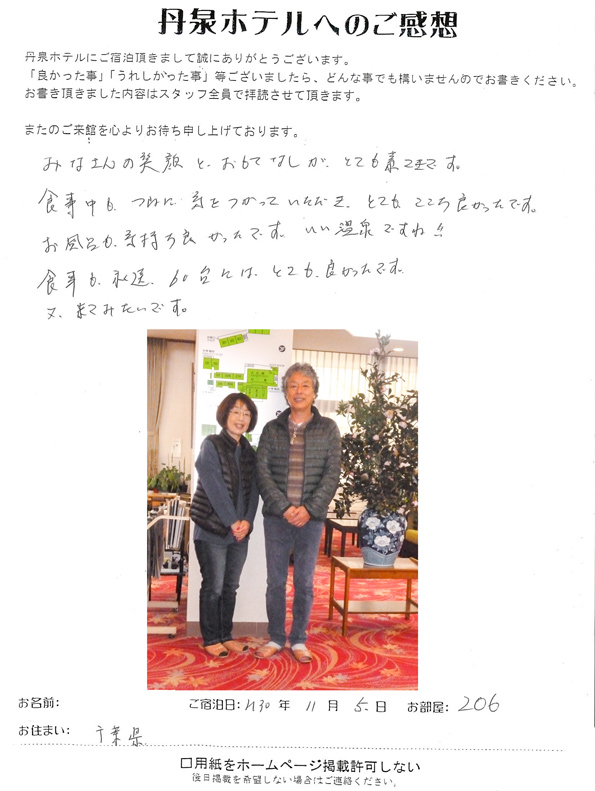 丹泉ホテルへのご感想
丹泉ホテルにご宿泊頂きまして誠にありがとうございます。
「良かった事」「うれしかった事」等ございましたら、どんな事でも構いませんのでお書きください。
お書き頂きました内容はスタッフ全員で拝読させて頂きます。
またのご来館を心よりお待ち申し上げております。
みなさんの笑顔と、おもてなしが、とても素てきです。
食事中も、つねに気をつかっていただき、とても、ここち良かったです。
お風呂も、気持ち良かったです。いい温泉ですね!!
食事も、 60台には、とても、良かったです。
又、来てみたいです。
お名前:
ご宿泊日: H30 年 11 月 5 日 お部屋: 206
お住まい: 千葉県
□用紙をホームページ掲載許可しない
後日掲載を希望しない場合はご連絡ください。